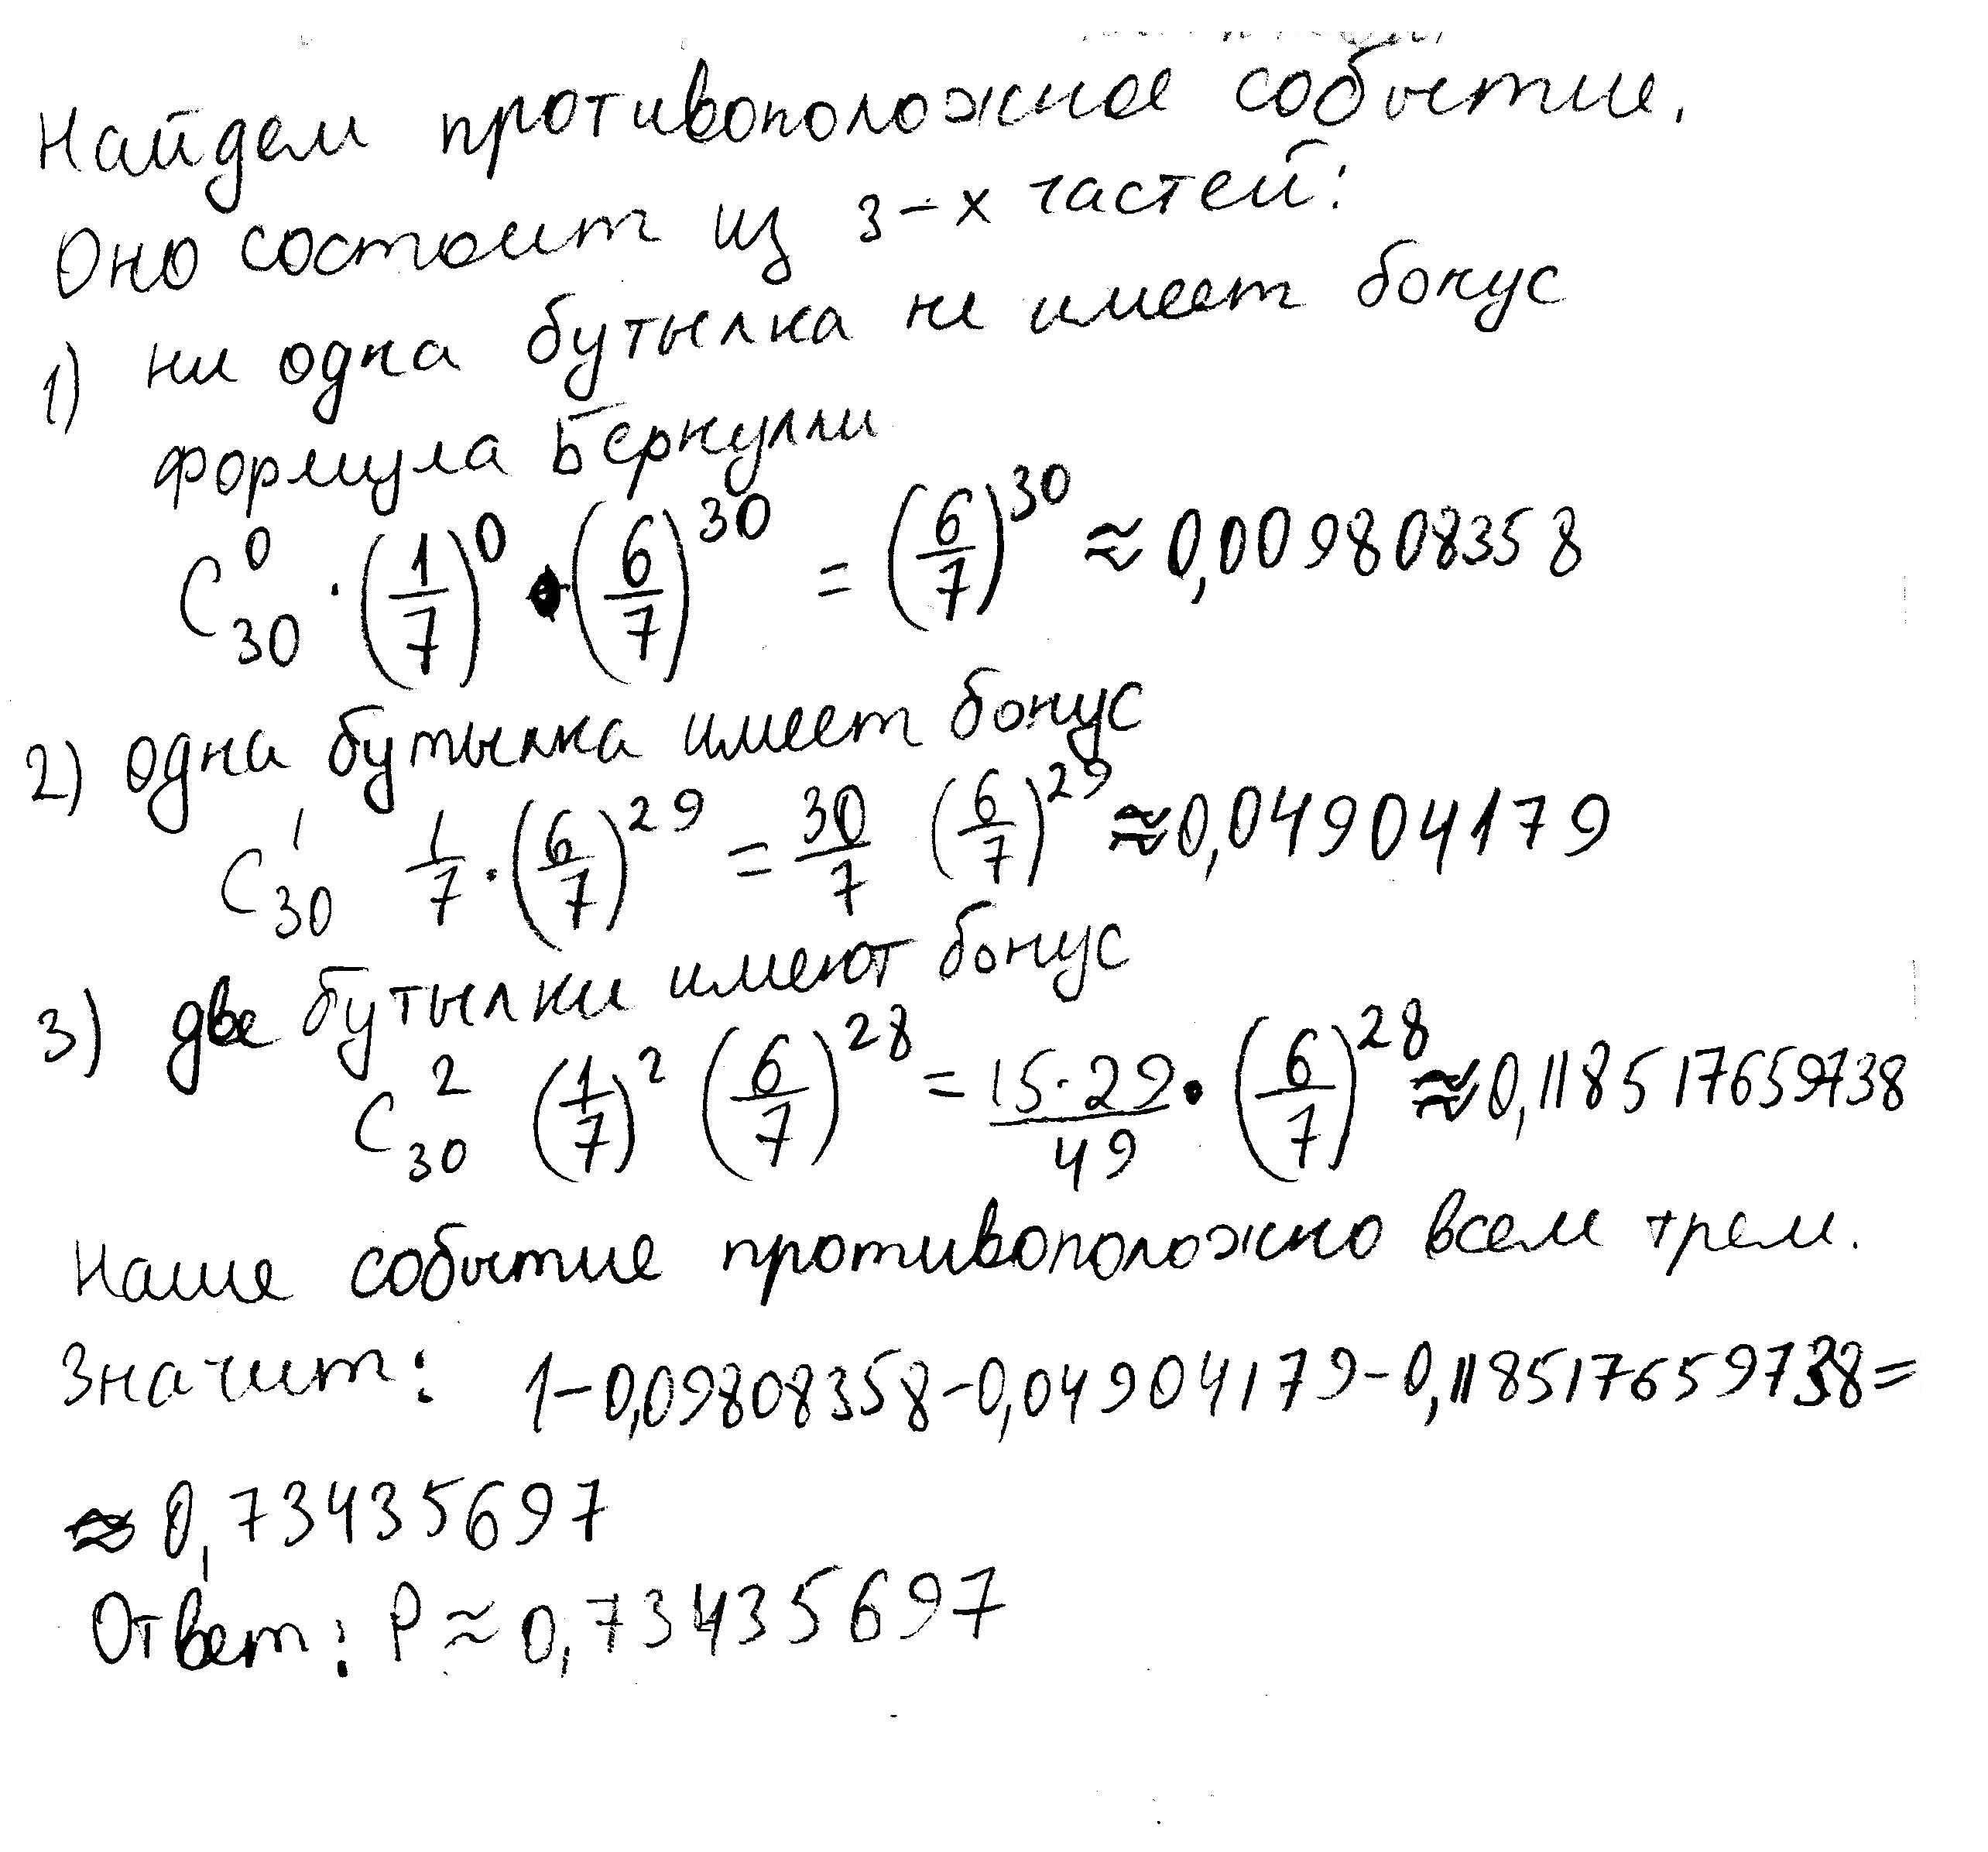 Найдем противоположное событие.
Оно состоит из 3-х частей:
1) ни одна бутылка не имеет бонус
формула Бернулли
C⁰₃₀ · (1/7)⁰ · (6/7)³⁰ = (6/7)³⁰ ≈ 0,009808358
2) одна бутылка имеет бонус
C¹₃₀ 1/7 · (6/7)²⁹ = 30/7 (6/7)²⁹ ≈ 0,04904179
3) две бутылки имеют бонус
C²₃₀ (1/7)² (6/7)²⁸ = 15·29/49 · (6/7)²⁸ ≈ 0,118517659738
Наше событие противоположно всем трем.
Значит: 1-0,09808358-0,04904179-0,118517659738=
≈ 0,73435697
Ответ: P ≈ 0,73435697